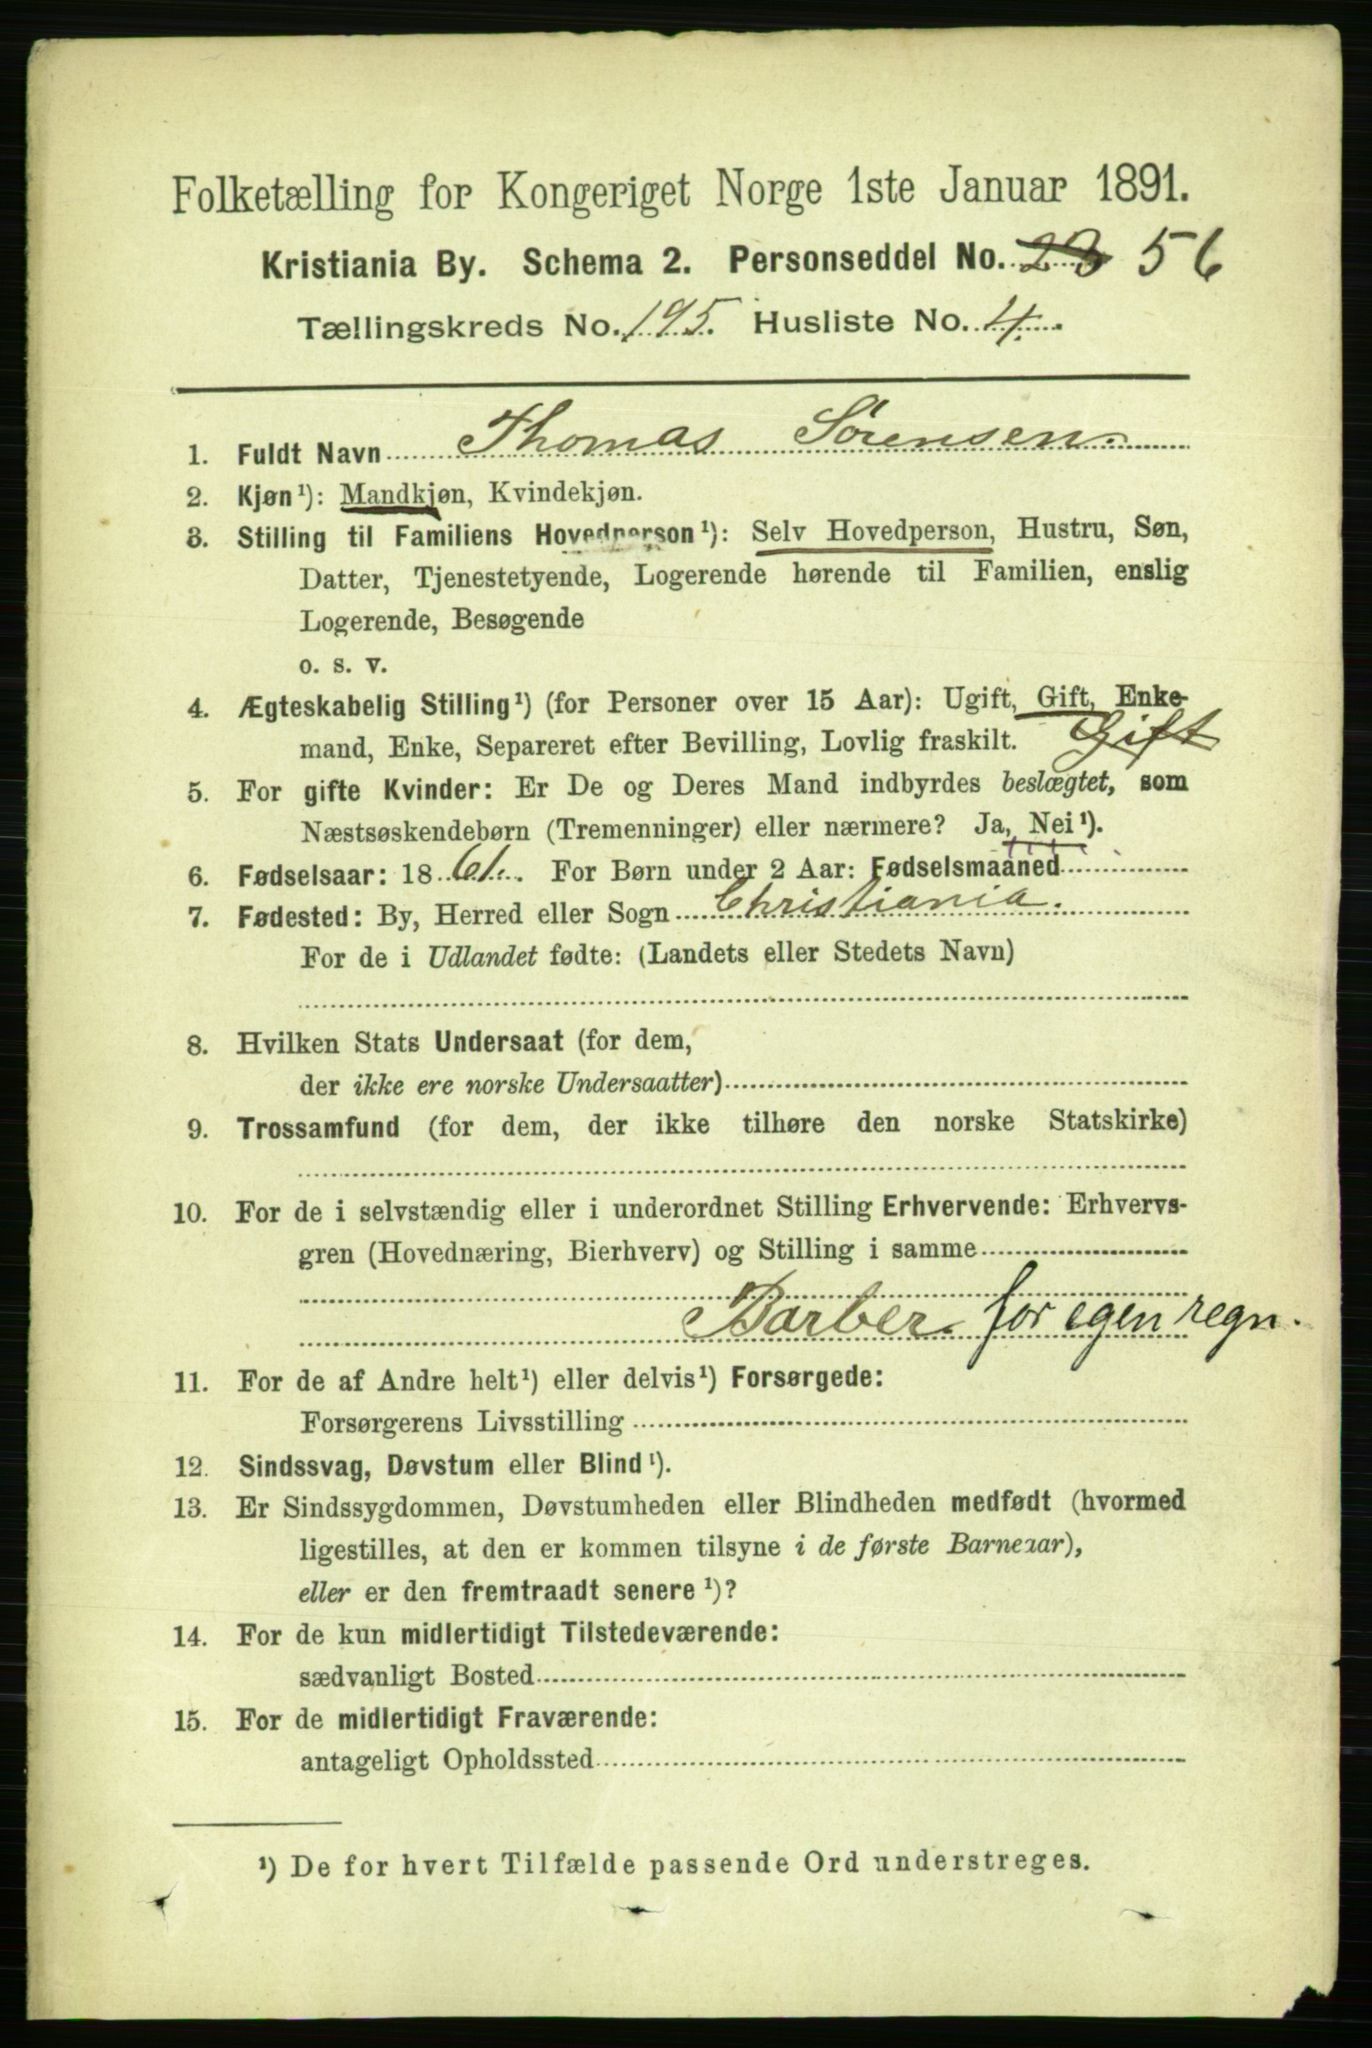 Folketælling for Kongeriget Norge 1ste Januar 1891.
Kristiania By. Schema 2. Personseddel No. 23 56
Tællingskreds No. 195. Husliste No. 4.
1. Fuldt Navn Thomas Sörensen.
2. Kjøn¹): Mandkjøn, Kvindekjøn.
3. Stilling til Familiens Hovedperson¹): Selv Hovedperson, Hustru, Søn,
Datter, Tjenestetyende, Logerende hørende til Familien, enslig
Logerende, Besøgende
o. s. v.
4. Ægteskabelig Stilling¹) (for Personer over 15 Aar): Ugift, Gift, Enke-
mand, Enke, Separeret efter Bevilling, Lovlig fraskilt. Gift
5. For gifte Kvinder: Er De og Deres Mand indbyrdes beslægtet, som
Næstsøskendebørn (Tremenninger) eller nærmere? Ja, Nei¹).
6. Fødselsaar: 1861. For Børn under 2 Aar: Fødselsmaaned
7. Fødested: By, Herred eller Sogn Christiania.
For de i Udlandet fødte: (Landets eller Stedets Navn)
8. Hvilken Stats Undersaat (for dem,
der ikke ere norske Undersaatter)
9. Trossamfund (for dem, der ikke tilhøre den norske Statskirke)
10. For de i selvstændig eller i underordnet Stilling Erhvervende: Erhvervs-
gren (Hovednæring, Bierhverv) og Stilling i samme
Barber. for egen regn.
11. For de af Andre helt¹) eller delvis¹) Forsørgede:
Forsørgerens Livsstilling
12. Sindssvag, Døvstum eller Blind¹).
13. Er Sindssygdommen, Døvstumheden eller Blindheden medfødt (hvormed
ligestilles, at den er kommen tilsyne i de første Barneaar),
eller er den fremtraadt senere¹)?
14. For de kun midlertidigt Tilstedeværende:
sædvanligt Bosted
15. For de midlertidigt Fraværende:
antageligt Opholdssted
¹) De for hvert Tilfælde passende Ord understreges.